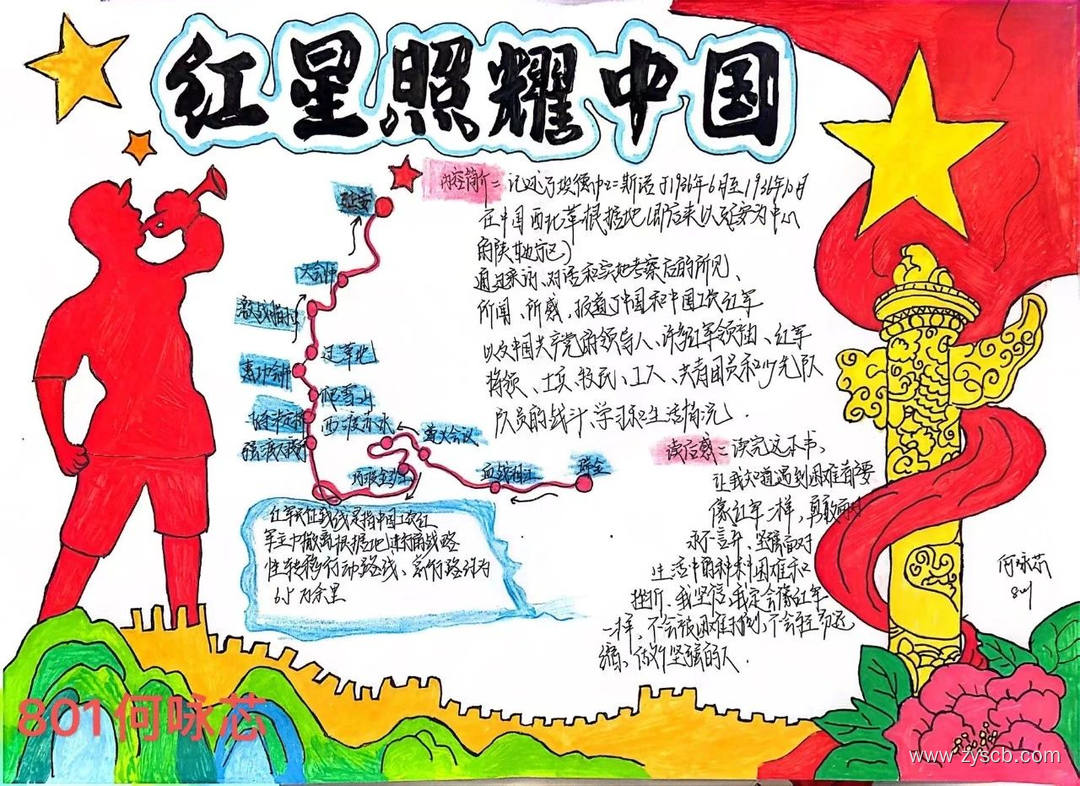 红星照耀中国
内容简介：记述了埃德加·斯诺于1936年6月至1936年10月
在中国西北革根据地(即后来以延安为中心
的陕
通过采访、对话和实地考察后的所见、
所闻、所感，报道了中国和中国工农红军
以及中国共产党的领导人、许多红军领袖、红军
将领、士兵、牧民、工人、共青团员和少先队
队员的战斗、学习和生活情况.
延安
大会师
激战腊子口
过草地
懋功会师
爬雪山
西渡赤水
遵义会议
巧渡金沙江
血战湘江
瑞金
红军长征
军主
根据地
战略
性转移行动路线、
6.5万余里
读后感：读完这本书，
让我知道遇到困难都要
像红军一样，勇敢面对
永不言弃，坚强面对
生活中的种种困难和
挫折，我坚信，我定会像红军
一样，不会被困难打倒，不会轻易退
缩，做个坚强的人.
何咏芯
801
801何咏芯
www.zyscb.com